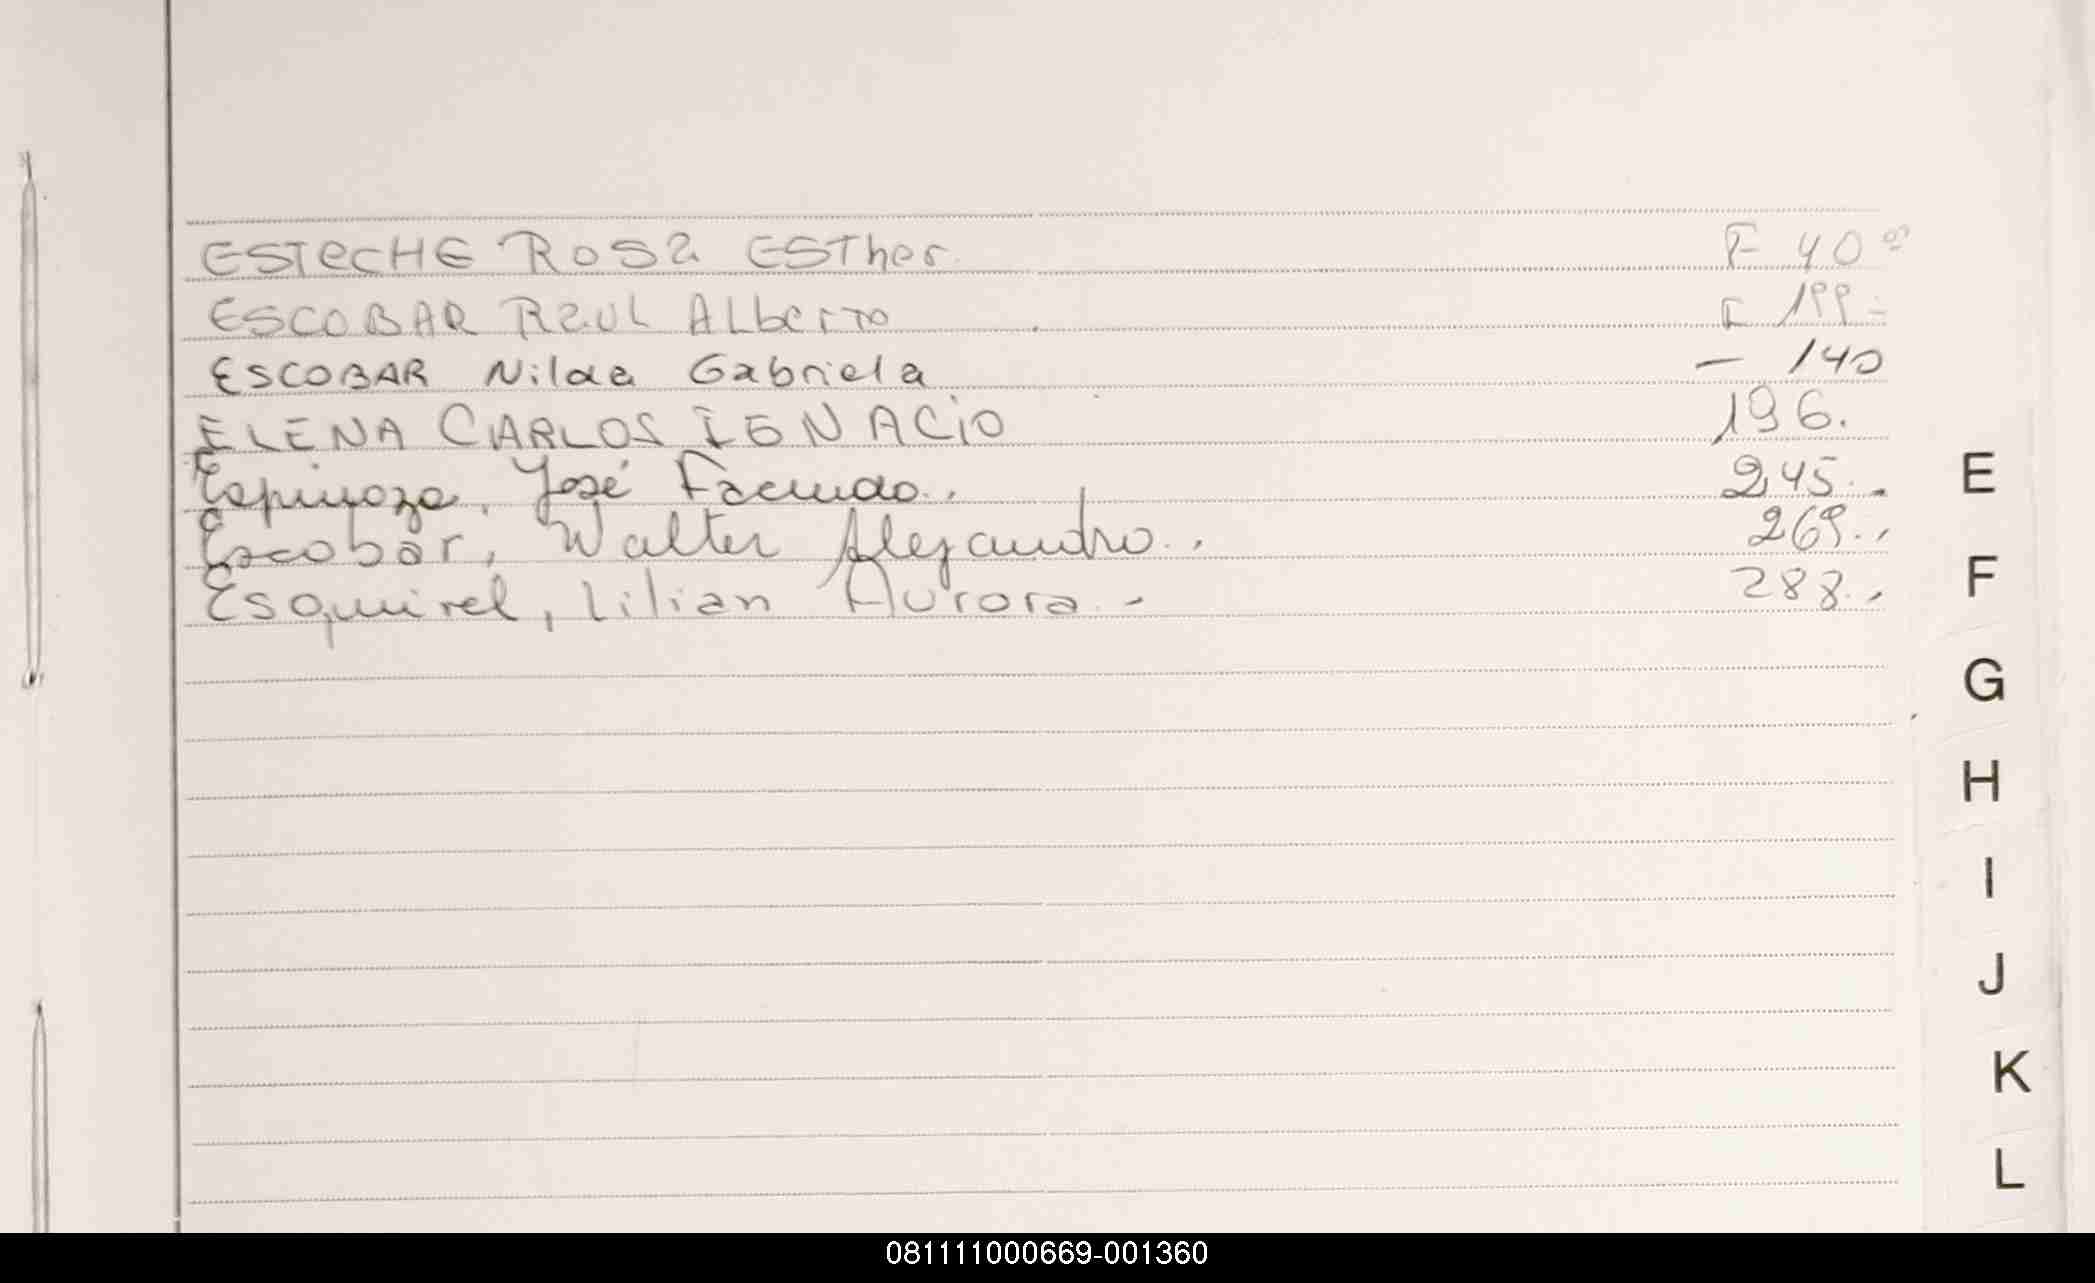 ESTECHE ROSA ESTher F 40
ESCOBAR Raul Alberto F 199-
ESCOBAR Nilda Gabriela - 140
ELENA CARLOS IGNACIO 196.
Espinoza, José Facundo.. 245..
Escobar, Walter Alejandro.. 269..
Esquivel, Lilian Aurora.- 288..
E
F
G
H
I
J
K
L
081111000669-001360